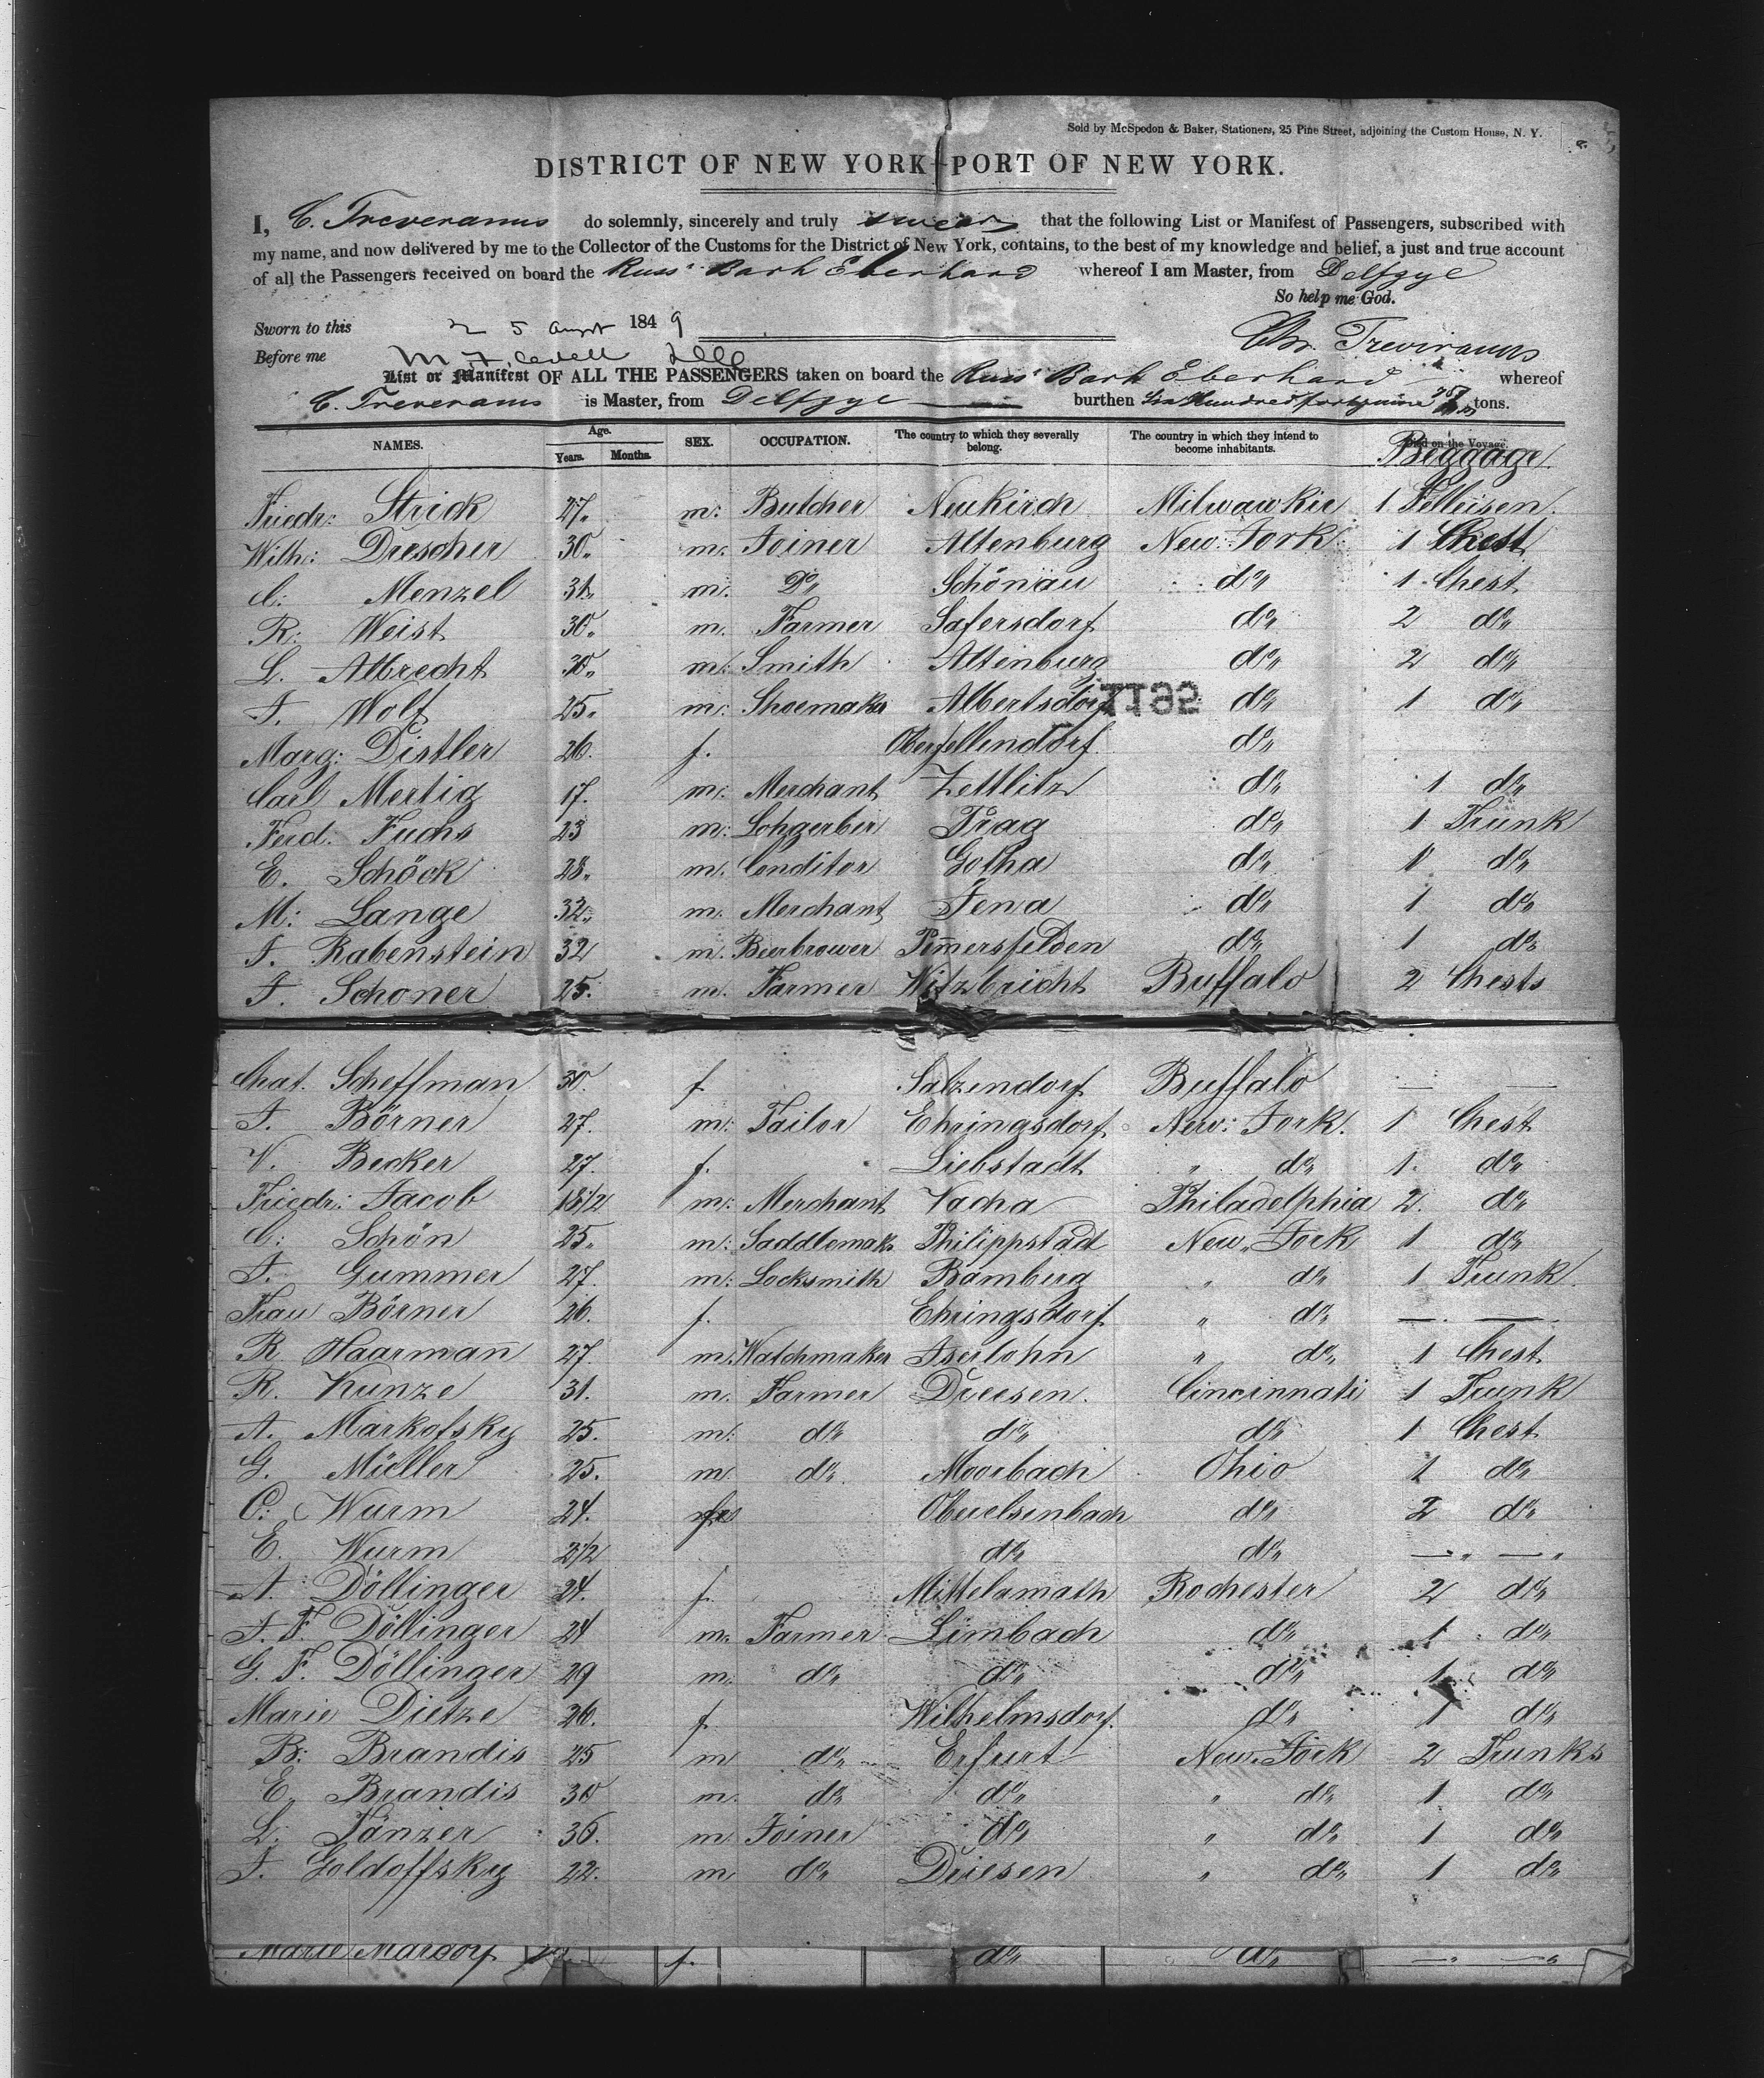 Sold by McSpedon & Baker, Stationers, 25 Pine Street, adjoining the Custom House, N. Y.
DISTRICT OF NEW YORK—PORT OF NEW YORK.
I, C. Treveranus do solemnly, sincerely and truly swear that the following List or Manifest of Passengers, subscribed with
my name, and now delivered by me to the Collector of the Customs for the District of New York, contains, to the best of my knowledge and belief, a just and true account
of all the Passengers received on board the Russ: Bark Eberhard whereof I am Master, from Delfzyl
So help me God.
Sworn to this 25 Augst 1849
Chr. Treviranus
Before me
List or Manifest OF ALL THE PASSENGERS taken on board the Russ: Bark Eberhard whereof
C. Treveranus is Master, from Delfzyl burthen Six Hundred forty nine tons.
NAMES. Age. Years. Months. SEX. OCCUPATION. The country to which they severally belong. The country in which they intend to become inhabitants. Died on the Voyage. Beggage.
Friedr: Strick 27. m: Butcher Neukirch Milwawkie 1 Felleisen.
Wilh: Drescher 30. m. Joiner Altenburg New York 1 Chest
C: Menzel 31. m. Do Schönau do 1 Chest
R: Weist 30. m. Farmer Safersdorf do 2 do
L. Albrecht 30. m: Smith Altenburg do 2 do
F. Wolf 25. m: Shoemaker Albertsdorf do 1 do
1195
Marg: Distler 26. f. Oberfellendorf do
Carl Mertig 17. m: Merchant Zettlitz do 1 do
Ferd. Fuchs 23 m: Lohgerber Prag do 1 Trunk
E. Schöck 28. m. Conditor Gotha do 1 do
M: Lange 32. m. Merchant Jena do 1 do
F. Rabenstein 32 m. Beerbrower Pom̅ersfelden do 1 do
F. Schoner 25. m. Farmer Witzbricht Buffalo 2 Chests
Chat. Scheffman 30. f Salzendorf Buffalo — —
F. Börner 27. m: Tailor Ehringsdorf New York. 1 Chest
V. Becker 27. f. Liebstadt " do 1. do
Friedr: Jacob 18 1/2 m: Merchant Vacha Philadelphia 2. do
C: Schön 25. m: Saddlemak Philippstadt New York 1 do
F. Gummer 27. m: Locksmith Bamberg " do 1 Trunk.
Frau Börner 26. f. Ehringsdorf " do —. —.
R Haarman̅ 27. m. Watchmaker Iserlohn " do 1 Chest
R. Kunze 31. m. Farmer Driesen. Cincinnati 1 Trunk
A. Markofsky 25. m: do do do 1 Chest
G. Müller 25. m. do Moorbach Ohio 1 do
C: Wurm 24. Oberelsenbach do 2 do
E. Wurm 2 1/2 do do —" —"
A. Döllinger 24. f. Mittelamath Rochester 2 do
J. F. Döllinger 24 m. Farmer Limbach do 1 do
G. F. Döllinger 29 m. do do do 1 do
Marie Dietze 26. f Wilhelmsdorf. do 1 do
B: Brandis 25 m do Erfurt New York 2 Trunks
E. Brandis 30 m. do do " do 1 do
L. Tänzer 36. m. Joiner do " do 1 do
F. Goldoffsky 22. m do Driesen " do 1 do
Marie Mardorf f. do do —" —"